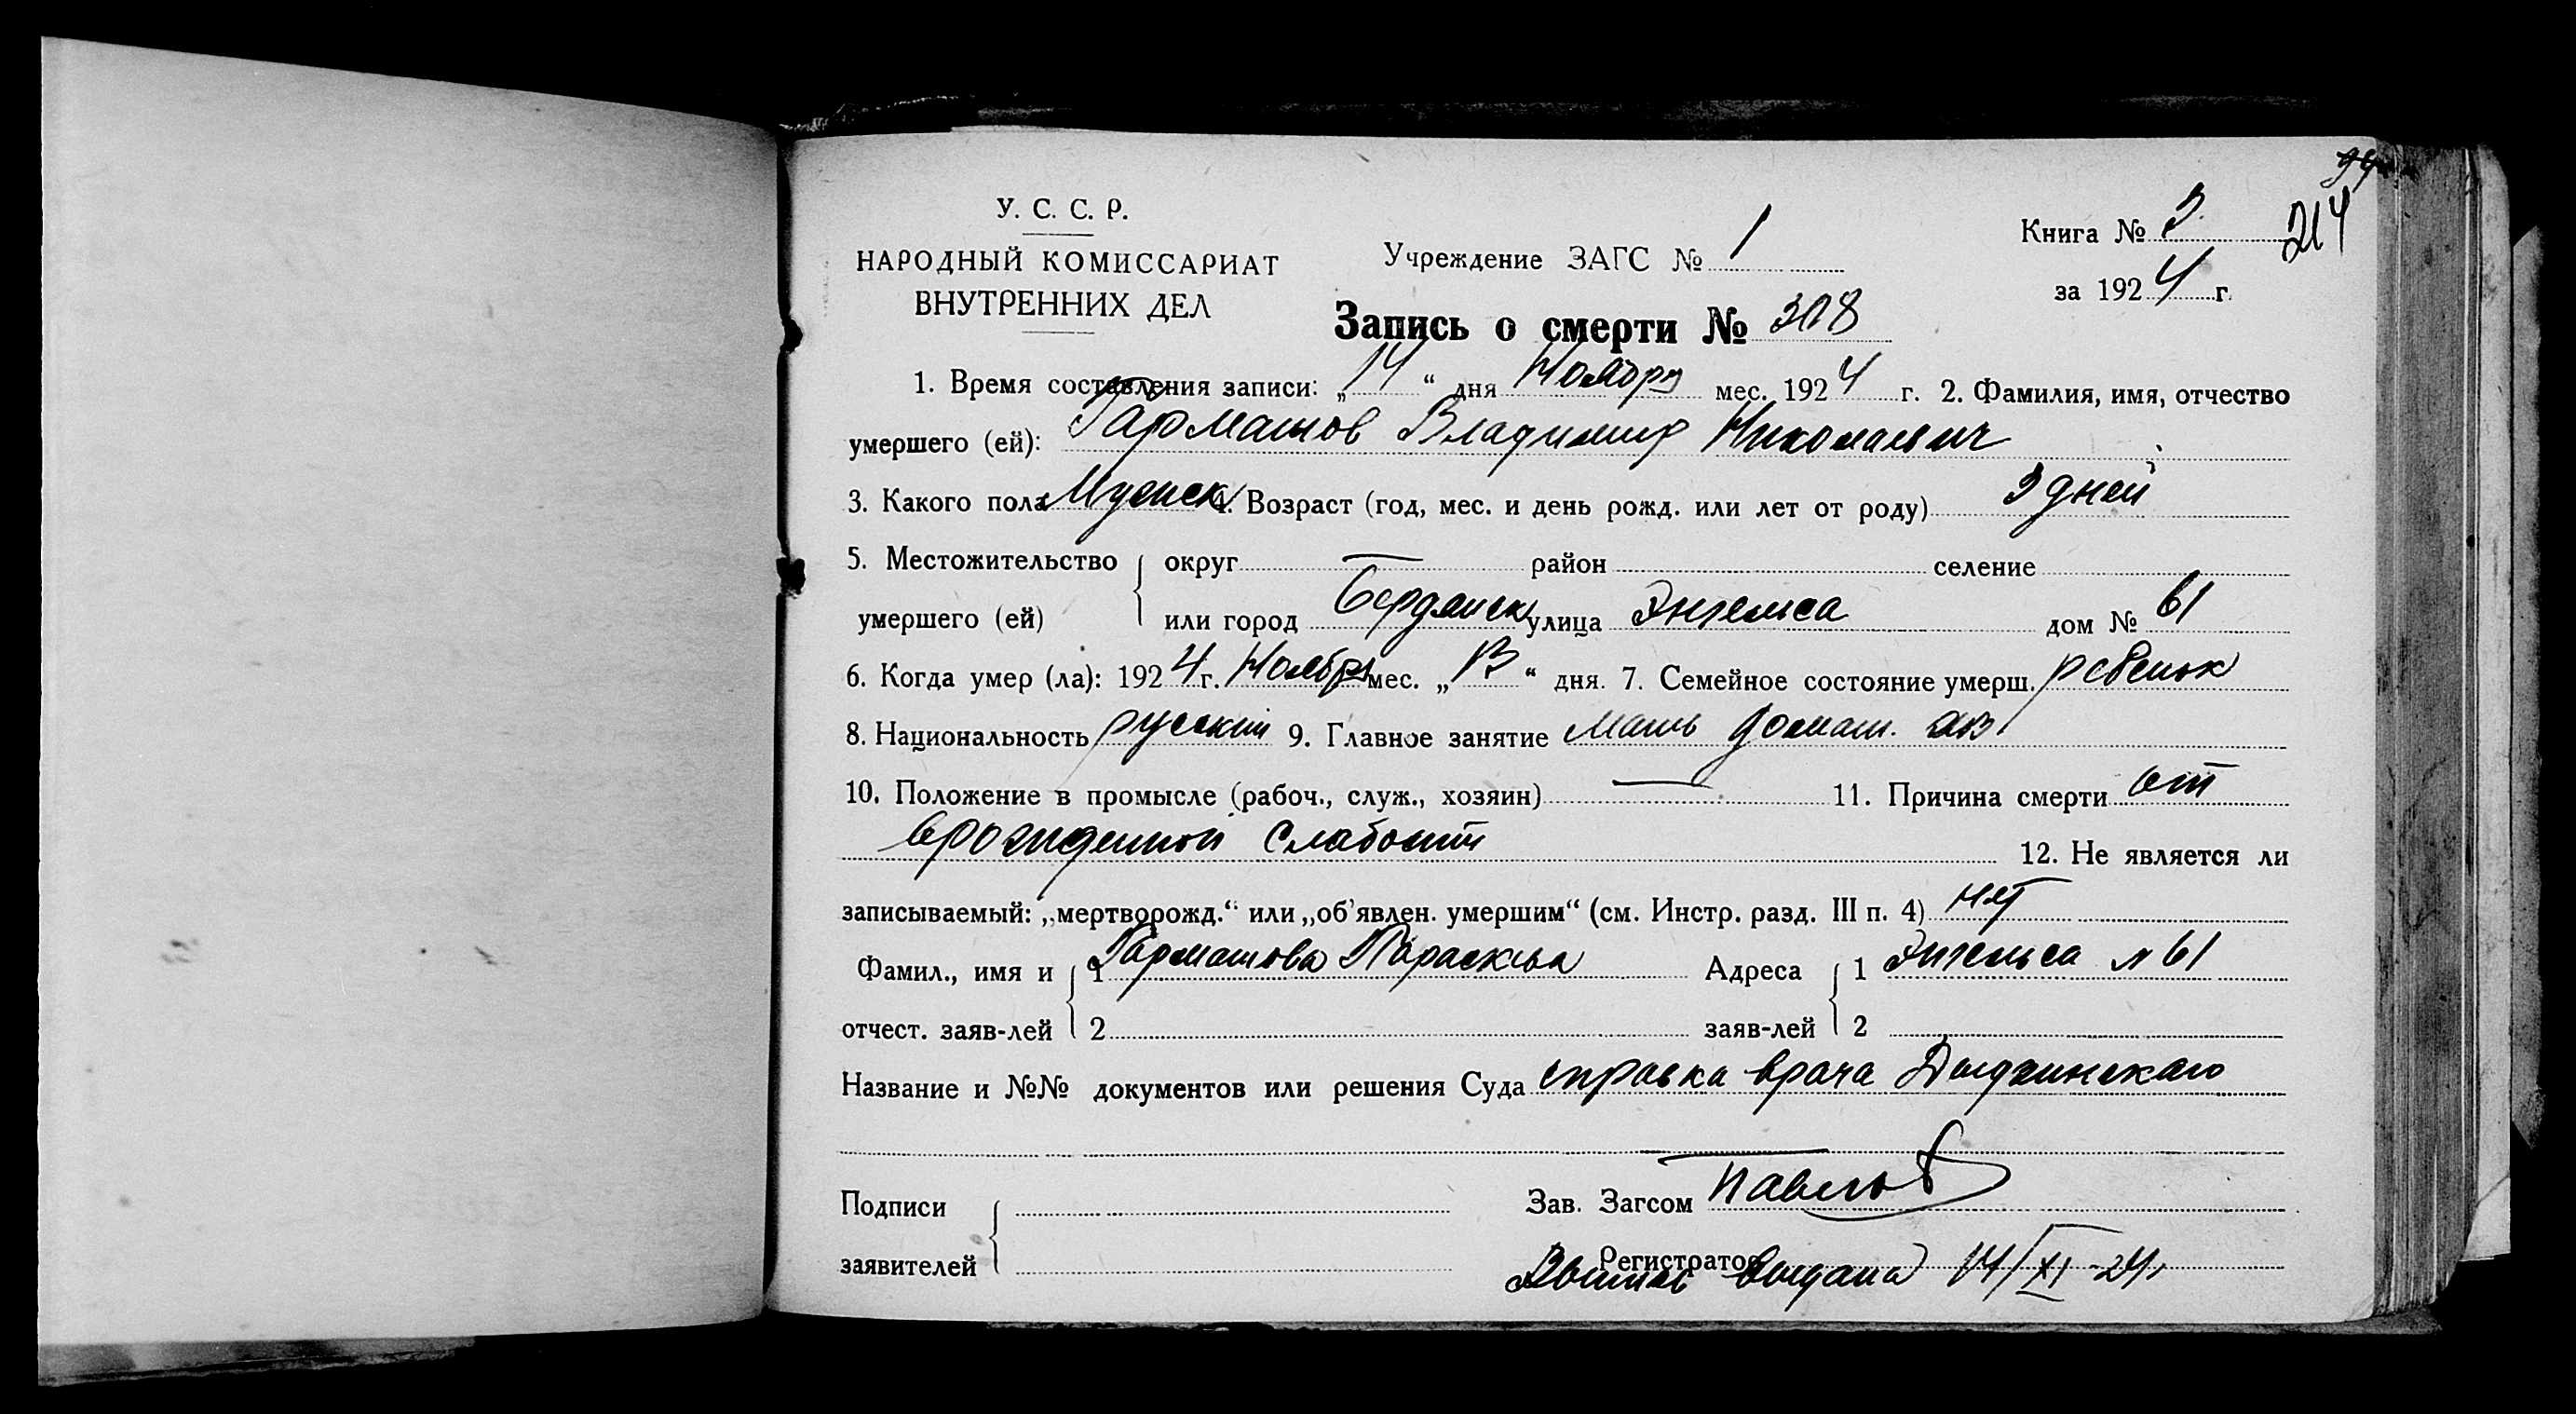 94
214
У. С. С. Р.
НАРОДНЫЙ КОМИССАРИАТ
ВНУТРЕННИХ ДЕЛ
Учреждение ЗАГС № 1
Книга № 3
за 1924 г.
Запись о смерти № 308
1. Время составления записи: „14“ дня Ноября мес. 1924 г. 2. Фамилия, имя, отчество
умершего (ей): Гармашов Владимир Николаевич
3. Какого пола Мужск 4. Возраст (год, мес. и день рожд. или лет от роду) 3 дней
5. Местожительство округ — район селение
умершего (ей) или город Бердянск улица Энгельса дом № 61
6. Когда умер (ла): 1924 г. Ноября мес. „13“ дня. 7. Семейное состояние умерш. ребенок
8. Национальность русский 9. Главное занятие Мать домаш. хоз
10. Положение в промысле (рабоч., служ., хозяин) — 11. Причина смерти от
врожденной слабости 12. Не является ли
записываемый: „мертворожд.“ или „об’явлен. умершим“ (см. Инстр. разд. III п. 4) нет
Фамил., имя и 1 Гармашова Параскева Адреса 1 Энгельса № 61
отчест. заяв-лей 2 заяв-лей 2
Название и №№ документов или решения Суда справка врача
Подписи Зав. Загсом Павлов
заявителей Регистратор
выдана 14/XI-24